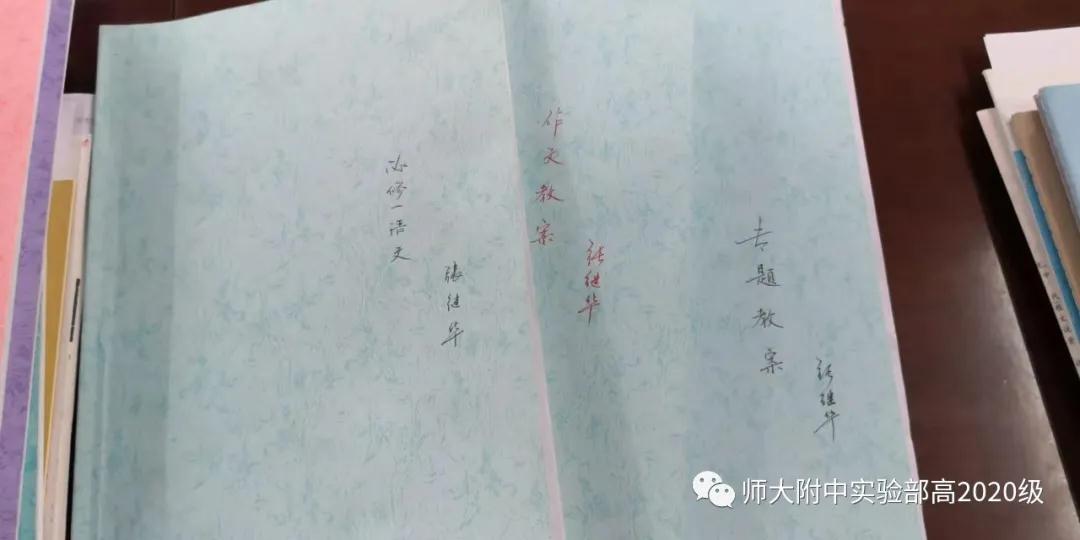 必修一语文
张继华
作文教案
张继华
专题教案
张继华
师大附中实验部高2020级